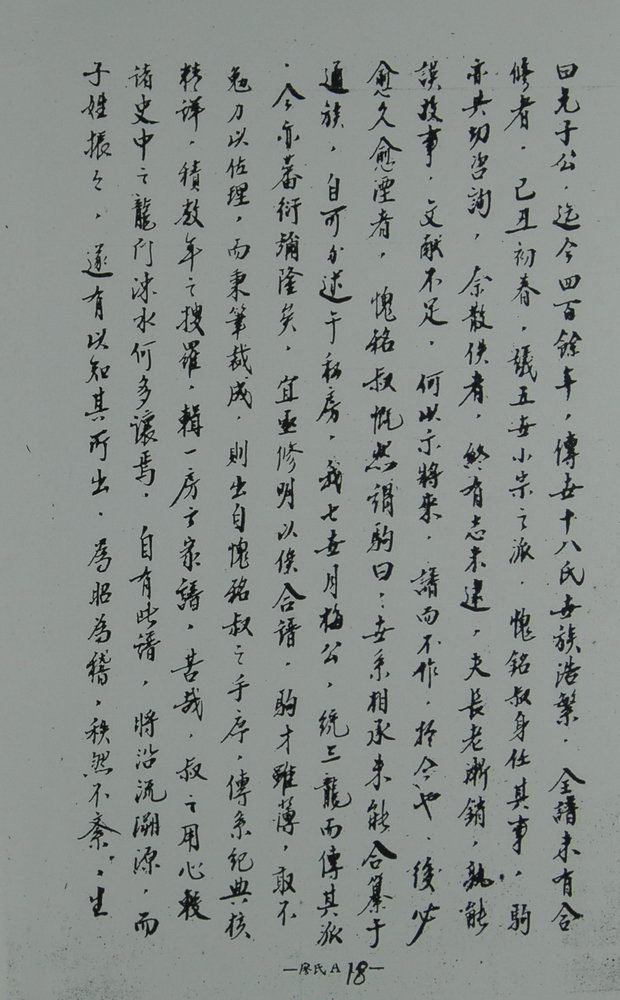 曰元子公，迄今四百餘年，傳世十八氏世族浩繁，全譜未有合
修者，己丑初春，議五世小宗之派，愧銘叔身任其事，駒
亦共切咨詢，余散佚者，終有志未逮，夫長老漸銷，孰能
誤故事，文献不足，何以示將來，譜而不作，於今也，後必
愈久愈湮者，愧銘叔慨然謂駒曰：世系相承未能合纂于
通族，自可分述于私房，我七世月梅公，統三龍而傳其派
，今亦蕃衍彌隆矣，宜亟修明以俟合譜，駒才雖薄，敢不
勉力以佐理，而秉筆裁成，則出自愧銘叔之手序，傳系紀典核
精詳，積数年之搜羅，輯一房之家譜，苦哉，叔之用心較
诸史中之龍门涑水何多讓焉，自有此譜，將沿流溯源，而
子姓振々，遂有以知其所出，為昭為穆，秩然不紊，生
—廖氏A18—